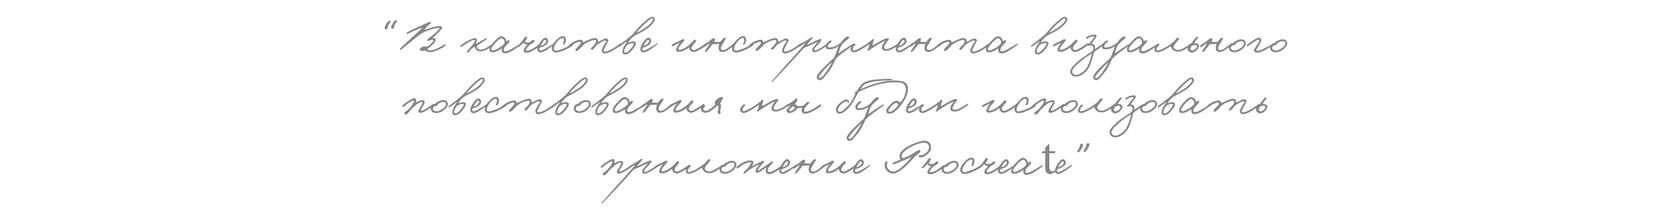 “В качестве инструмента визуального
повествования мы будем использовать
приложение Procreate”